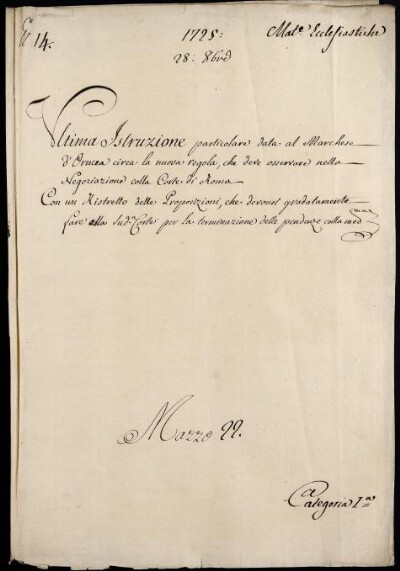 N 14. 1725: Mat.e Ecclesiastiche
28: 8bre
Ultima Istruzione particolare data al Marchese
d'Ormea circa la nuova regola, che deve osservare nella
Negoziazione colla Corte di Roma
Con un Ristretto delle Proposizioni, che devonsi gradatamente
fare alla Sud.a Corte per la terminazione delle pendenze colla med.ma
Mazzo 22.
Categoria I.a